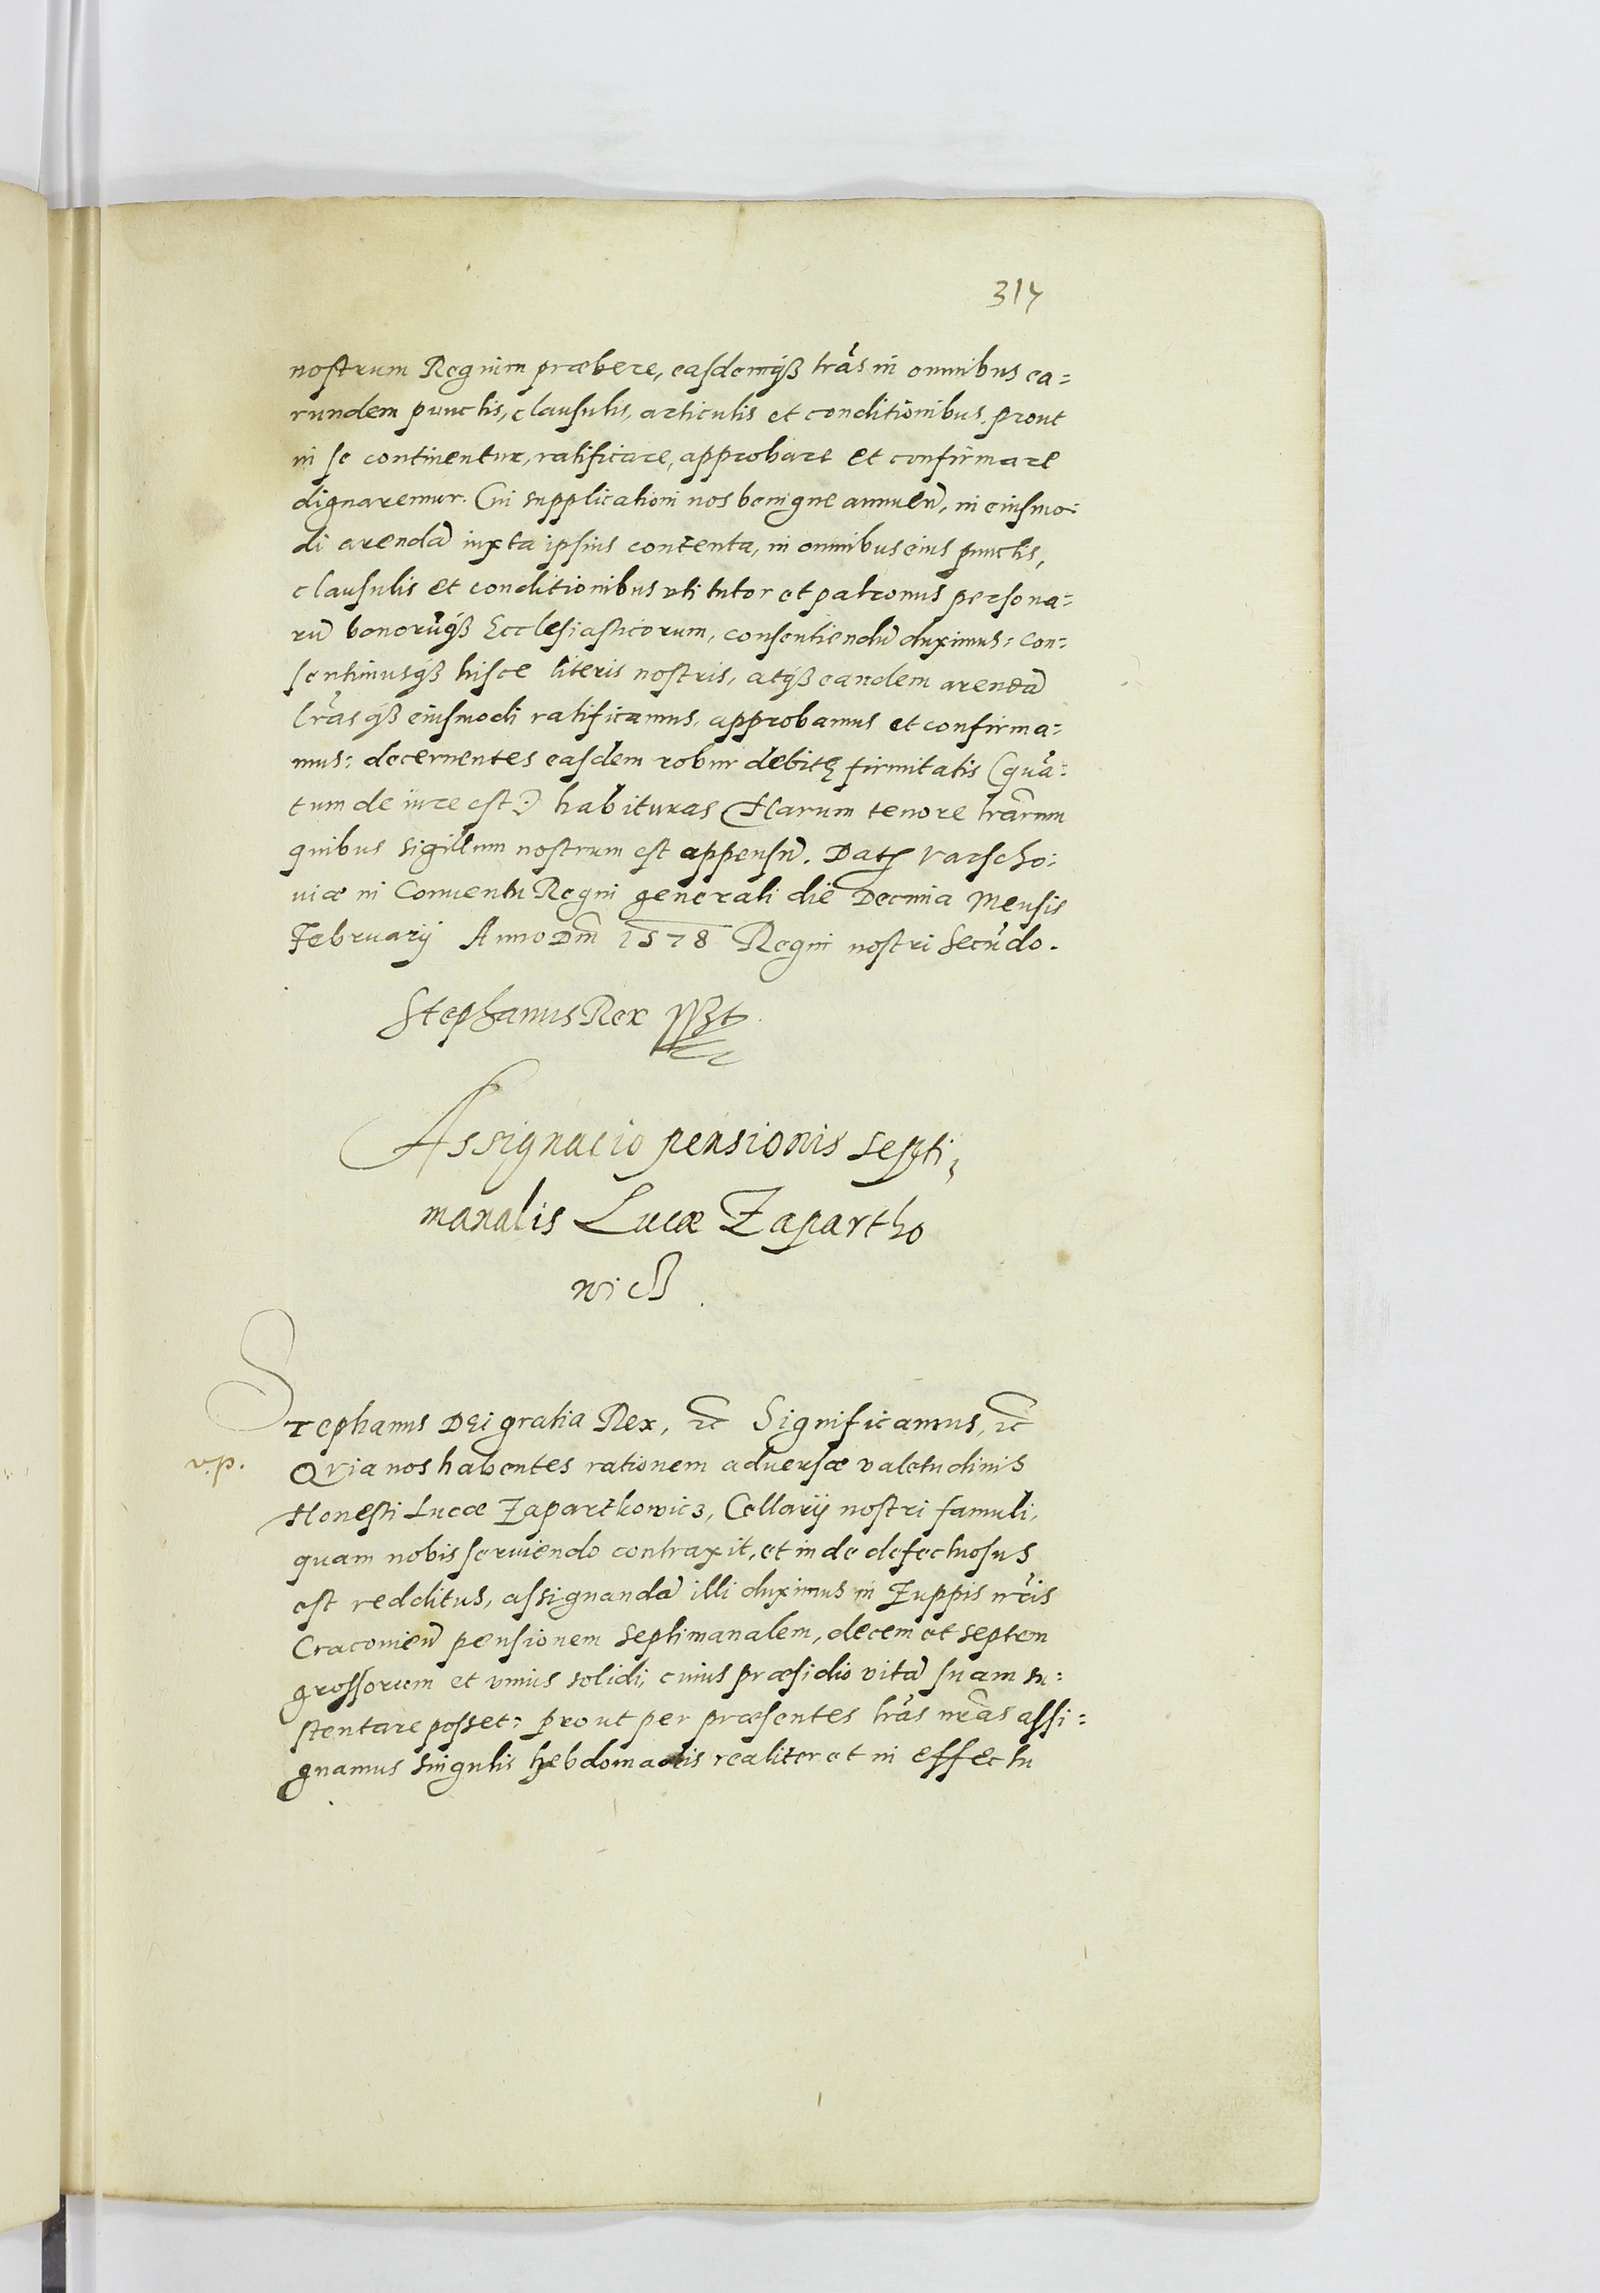 317
nostrum Regium præbere, easdemqȝ lr̃as in omnibus ea=
rundem punctis, clausulis, articulis et conditionibus prout
in se continentur, ratificare, approbare et confirmare
dignaremur. Cui supplicationi nos benigne annuen̄, in eiusmo=
di arendā iuxta ipsius contenta, in omnibus eius punctis,
clausulis et conditionibus uti tutor et patronus persona=
rū bonorūqȝ Ecclesiasticorum, consentiendū duximus: con=
sentimusqȝ hisce literis nostris, atqȝ eandem arendā
lr̃asqȝ eiusmodi ratificamus, approbamus et confirma=
mus: decernentes easdem robur debitę firmitatis (quā=
tum de iure est) habituras Harum tenore lr̃arum
quibus sigillum nostrum est appensū. Datę Varscho=
uiæ in Conuentu Regni generali die Decima Mensis
Februarij Anno Dn̄i 1578 Regni nostri Secūdo.
Stephanus Rex
Assignacio pensionis septi=
manalis Lucæ Zapartho
wicz
Stephanus Dei gratia Rex, etc Significamus, etc
v.p.
Quia nos habentes rationem aduersæ valetudinis
Honesti Lucæ Zapartkowicz, Cellarij nostri famuli,
quam nobis seruiendo contraxit, et inde defectuosus
est redditus, assignandā illi duximus in Zuppis nr̃is
Cracouien̄ pensionem septimanalem, decem et septem
grossorum et unius solidi, cuius præsidio vitā suam su=
stentare posset: prout per præsentes lr̃as nr̃as assi=
gnamus singulis hebdomadis realiter et in effectu